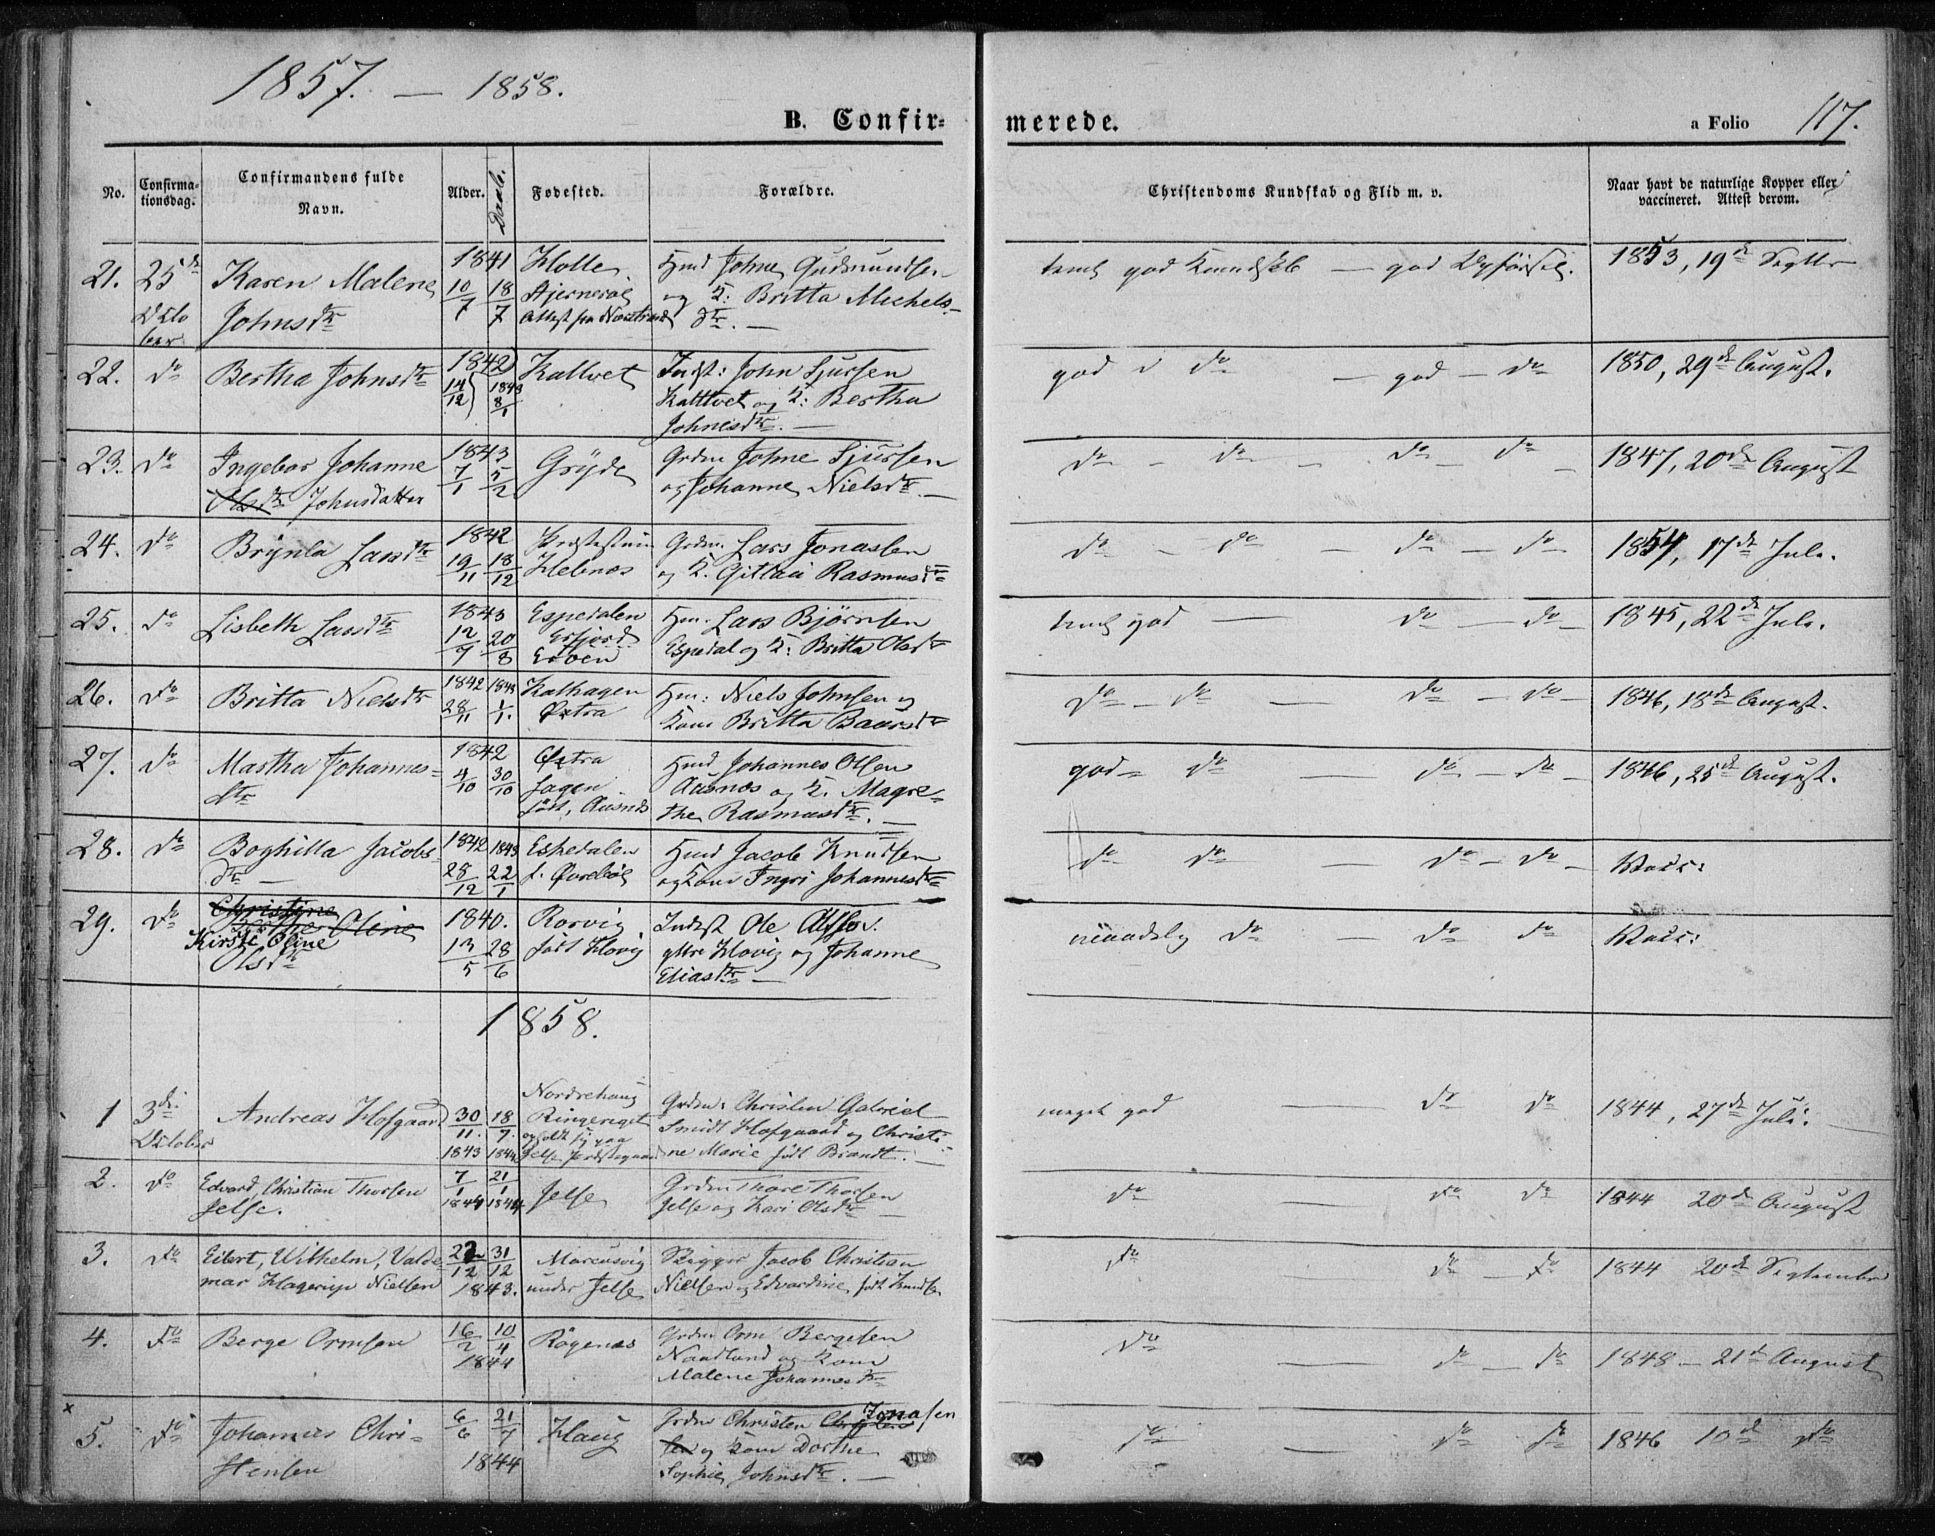 1857. — 1858.
B. Confir= merede. a Folio 117.
No. Confirma-tionsdag. Confirmandens fulde Navn. Alder. Daab. Fødested. Forældre. Christendoms Kundskab og Flid m. v. Naar havt de naturlige Kopper eller vaccineret. Attest derom.
21. 25de October Karen Malene Johnsdtr 1841 10/7 18/7 Hjernerøe Attest fra Nerstrand Hmd Johne Gudmundsen og K: Britta Michels-dtr. — temlig god Kundskab — god Opførsel. 1853, 19de Septbr
22. do Bertha Johnsdtr 1842 14/12 1843 8/1 Kaltvet Indst: John Sjursen Kaltvet og K: Bertha Johnesdtr. — god do — god — do 1850, 29de August.
23. do Ingebor Johanne Olsdtr Johnsdatter 1843 7/1 5/2 Grøde Grdm Johne Sjursen og Johanne Nielsdtr. — do — do — do — do — 1847, 20de August
24. do Brynla Larsdtr 1842 19/11 18/12 Helenæs Grdm. Lars Jonassen og K. Rasmusdtr do — do — do — do 1854, 17de Juli.
25. do Lisbeth Larsdtr 1843 12/7 20/8 Espedalen Erfjord Hm. Lars Bjørnsen Espedal og K: Britta Olsdtr temlig god — do — do 1845, 22de Juli.
26. do Britta Nielsdtr 1842 28/11 1843 1/1. Kalhagen Hm: Niels Johnsen og Kone Britta Baarsdtr do — do — do — do 1846, 18de August.
27. do Martha Johannes=dtr 1842 4/10 30/10 født Aasnes Hmd Johannes Olsen Aasnæs og K. Magre=the Rasmusdtr. — god — do — do — do 1846, 25de August.
28. do Boghilla Jacobs-dtr — 1842 28/12 1843 22/1 Espedalen Hmd Jacob Knudsen og Kone Ingri Johannesdtr do do — do — do — Vacc:
29. do Christine Oline Kirste Oline Olsdtr 1840. 13/5 28/6 Rørvig født Hovig Indst Ole yttre Hovig og Johanne Eliasdtr — maadelig do — do do Vacc:
1858.
1 3de October Andreas Hofgaard 30/11. 1843 18/7. 1844 Nordrehoug Ringeriget opholdt sig paa Jelse Præstegaard Grdm: Christen Gabriel Smidt Hofgaard og Christi-ne Marie født Brandt. — meget god — do do 1844, 27de Juli:
2. do Edvard Christian Thorsen Jelse. 7/1 1844 21/1 1844 Jelse Grdm Thore Thorsen Jelse og Kari Olsdtr — do — do do 1844 20de August
3. do Eilert, Wilhelm, Valde mar Hagerup Nielsen 22/12 31/12 1843. Marcusvig under Jelse Jacob Christian Nielsen og Edvardine født Knudsen do — do — do 1844 20de September
4. do Berge Ormsen 16/2 10/4 1844 Røgenæs Grdm Orm Bergesen Naadland og Kone Malene Johannesdtr do — do — do 1848 — 21de August
x
5. do Johannes Chri-stensen 6/6 21/7 1844 Haug Grdm Christen Christen sen Jonasen og Kone Dorthe Sophie Johnsdtr. — do — do do 1846 10de do